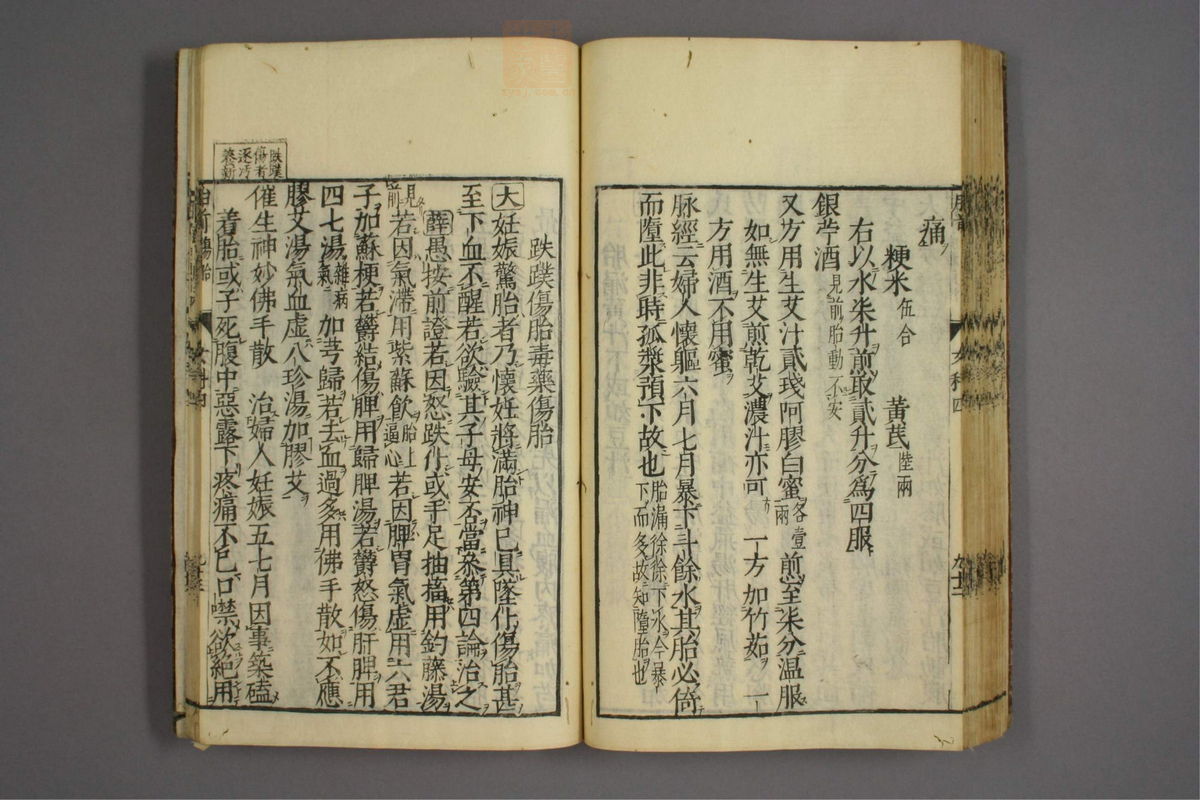 痛
粳米伍合 黃芪陸兩
右以水柒升煎取貳升分爲四服
銀苧酒見前胎動不安
又方用生艾汁貳琖阿膠白蜜各壹兩煎至柒分温服
如無生艾煎乾艾濃汁亦可一方加竹茹一
方用酒不用蜜
脉經云婦人懷軀六月七月暴下斗餘水其胎必倚
而墮此非時孤漿預下故也胎漏徐徐下水今暴下而多故知墮胎也
女科四
跌蹼傷胎毒藥傷胎
大妊娠驚胎者乃懷妊將滿胎神已具墜仆傷胎甚
至下血不醒若欲驗其子母安否當叅第四論治之
薛愚按前證若因怒跌仆或手足抽搐用鈎藤湯
見前若因氣滯用紫蘇飲胎上逼心若因脾胃氣虛用六君
子加蘇梗若鬱結傷脾用歸脾湯若鬱怒傷肝脾用
四七湯雜病氣加芎歸若去血過多用佛手散如不應
膠艾湯氣血虛八珍湯加膠艾
催生神妙佛手散 治婦人妊娠五七月因事築磕
着胎或子死腹中惡露下疼痛不已口噤欲絶用
跌蹼
傷者